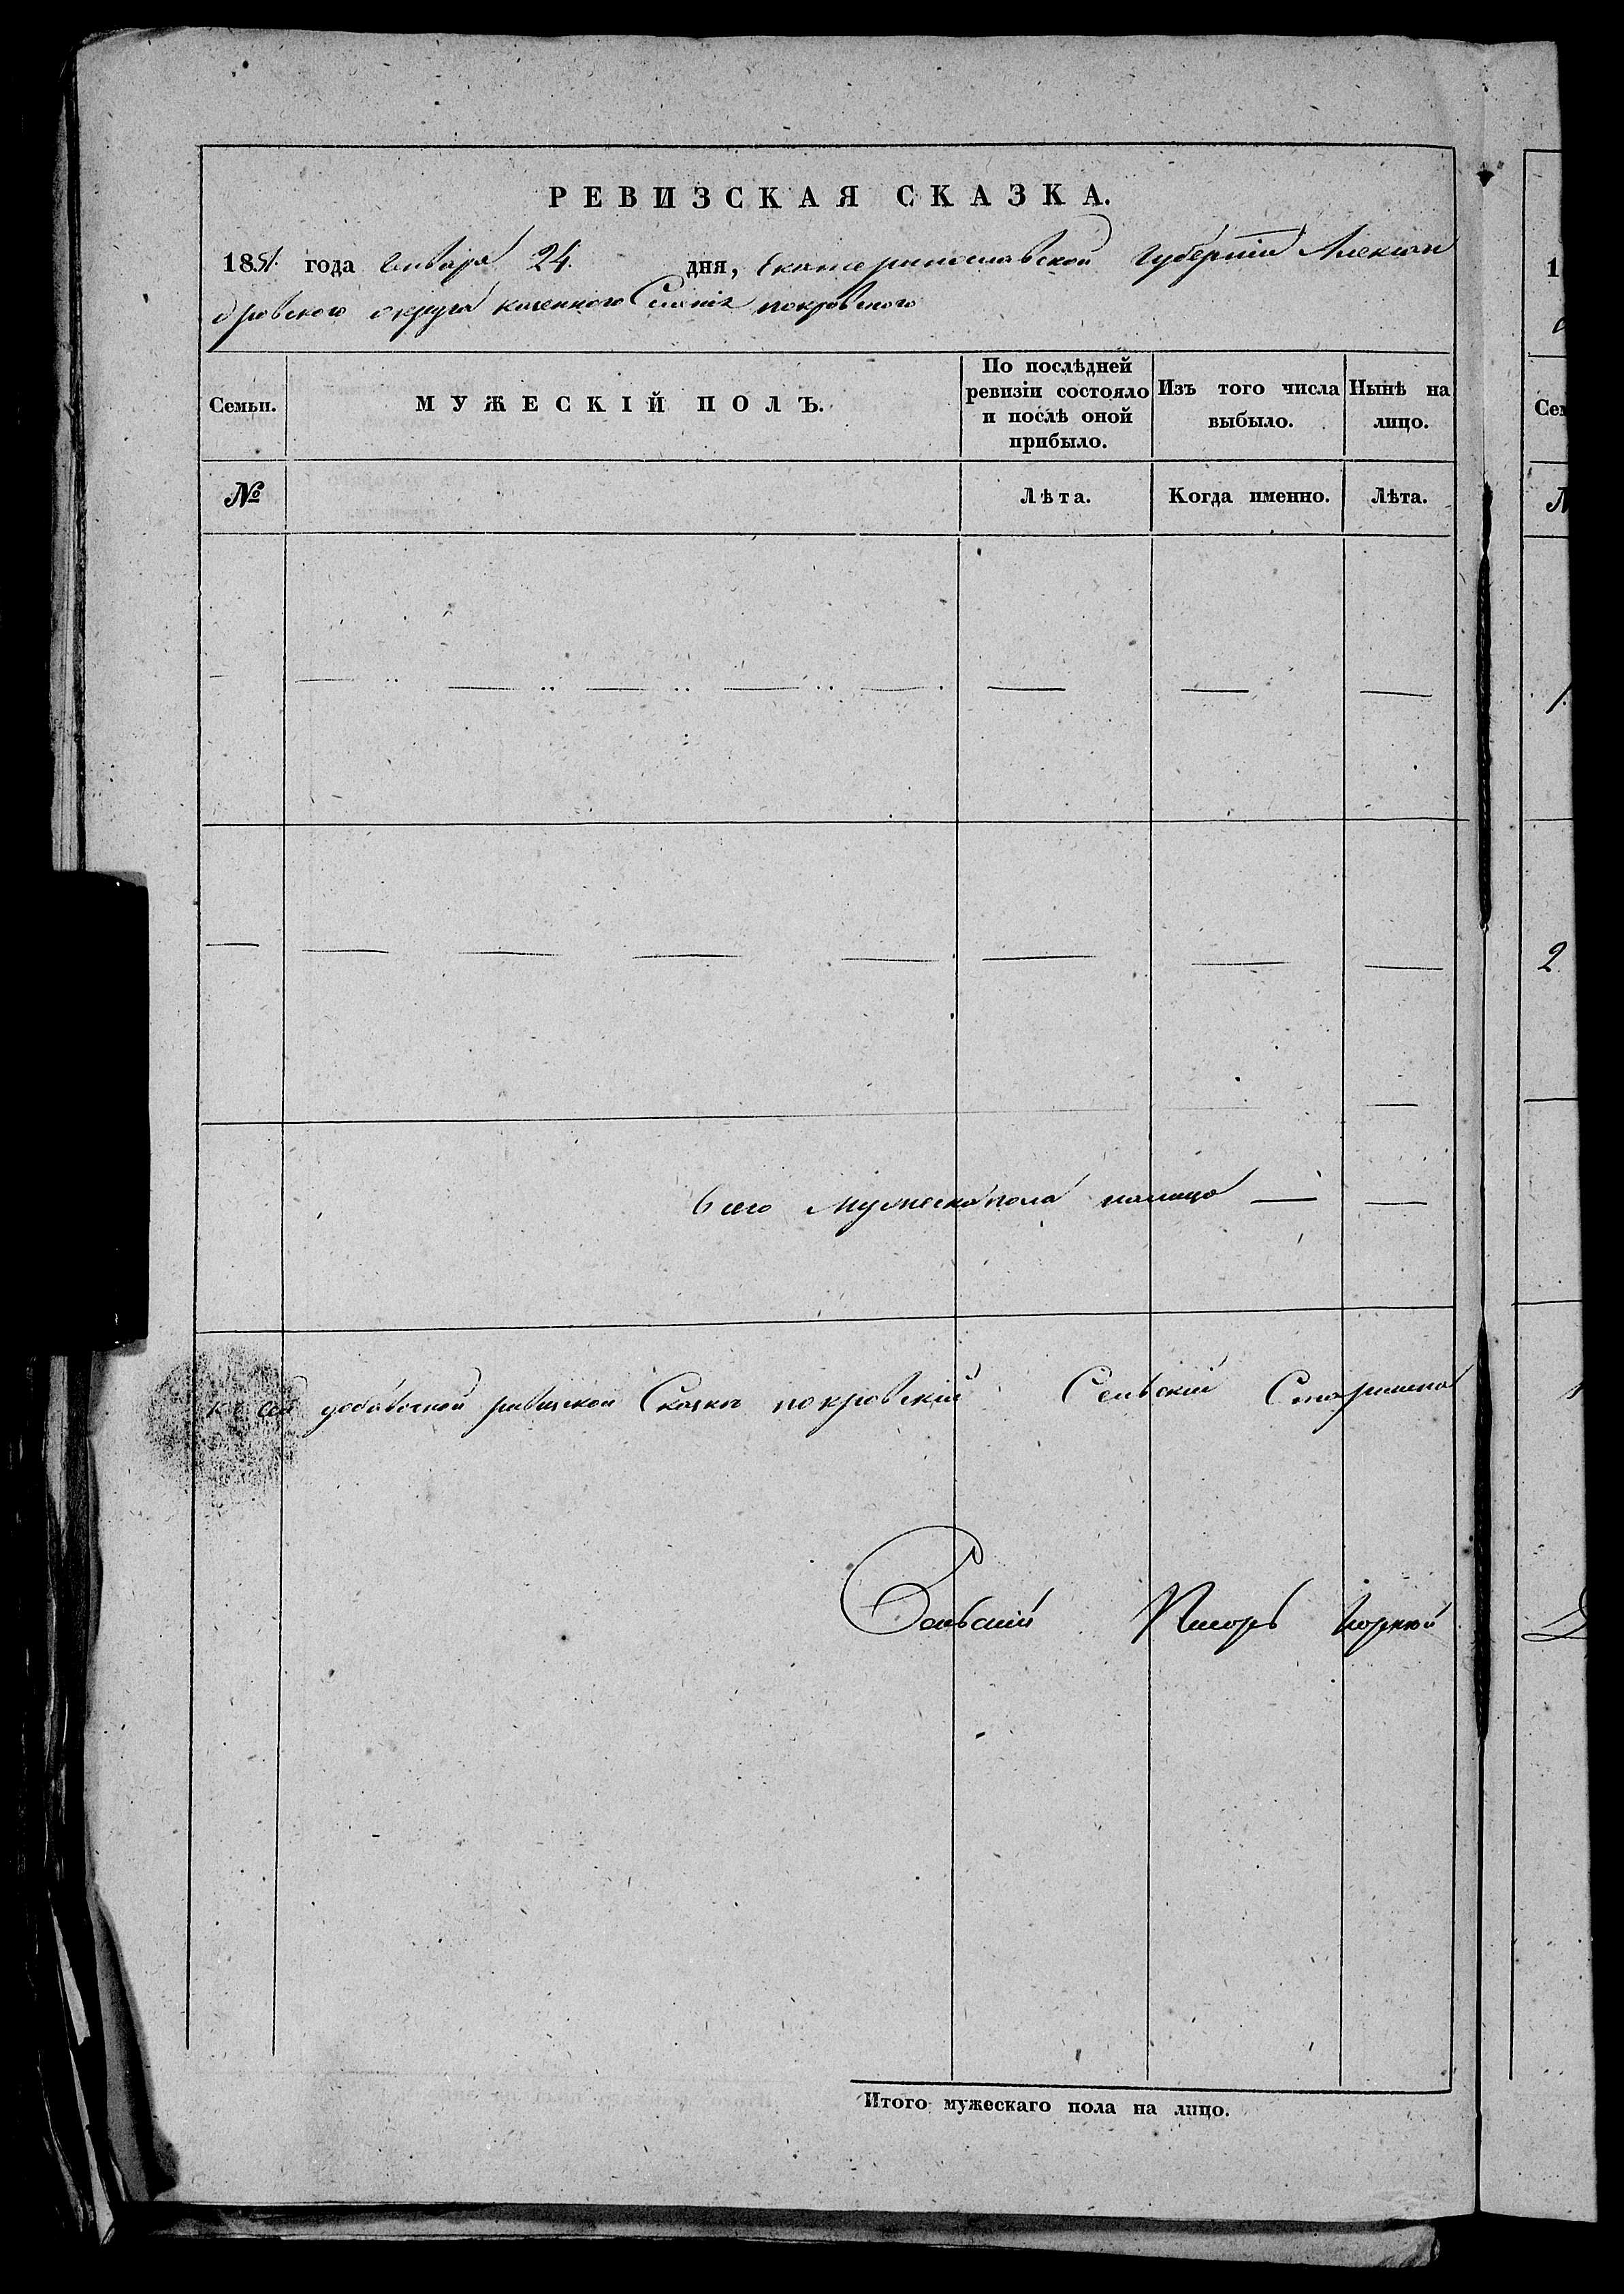 РЕВИЗСКАЯ СКАЗКА.
1851. года января 24. дня, Екатеринославской губерніи Алексан
дровского округа казенного Селенія покровского
Семьи.
МУЖЕСКІЙ ПОЛЪ.
По послѣдней ревизіи состояло и послѣ оной прибыло.
Изъ того числа выбыло.
Нынѣ на лицо.
№
Лѣта.
Когда именно.
Лѣта.
1.
2
Всего Мужеска пола налицо — —
к сей добавочной ревизской Сказке покровскій Сельскій Старшина
Сельскій Писарь
Итого мужескаго пола на лицо.